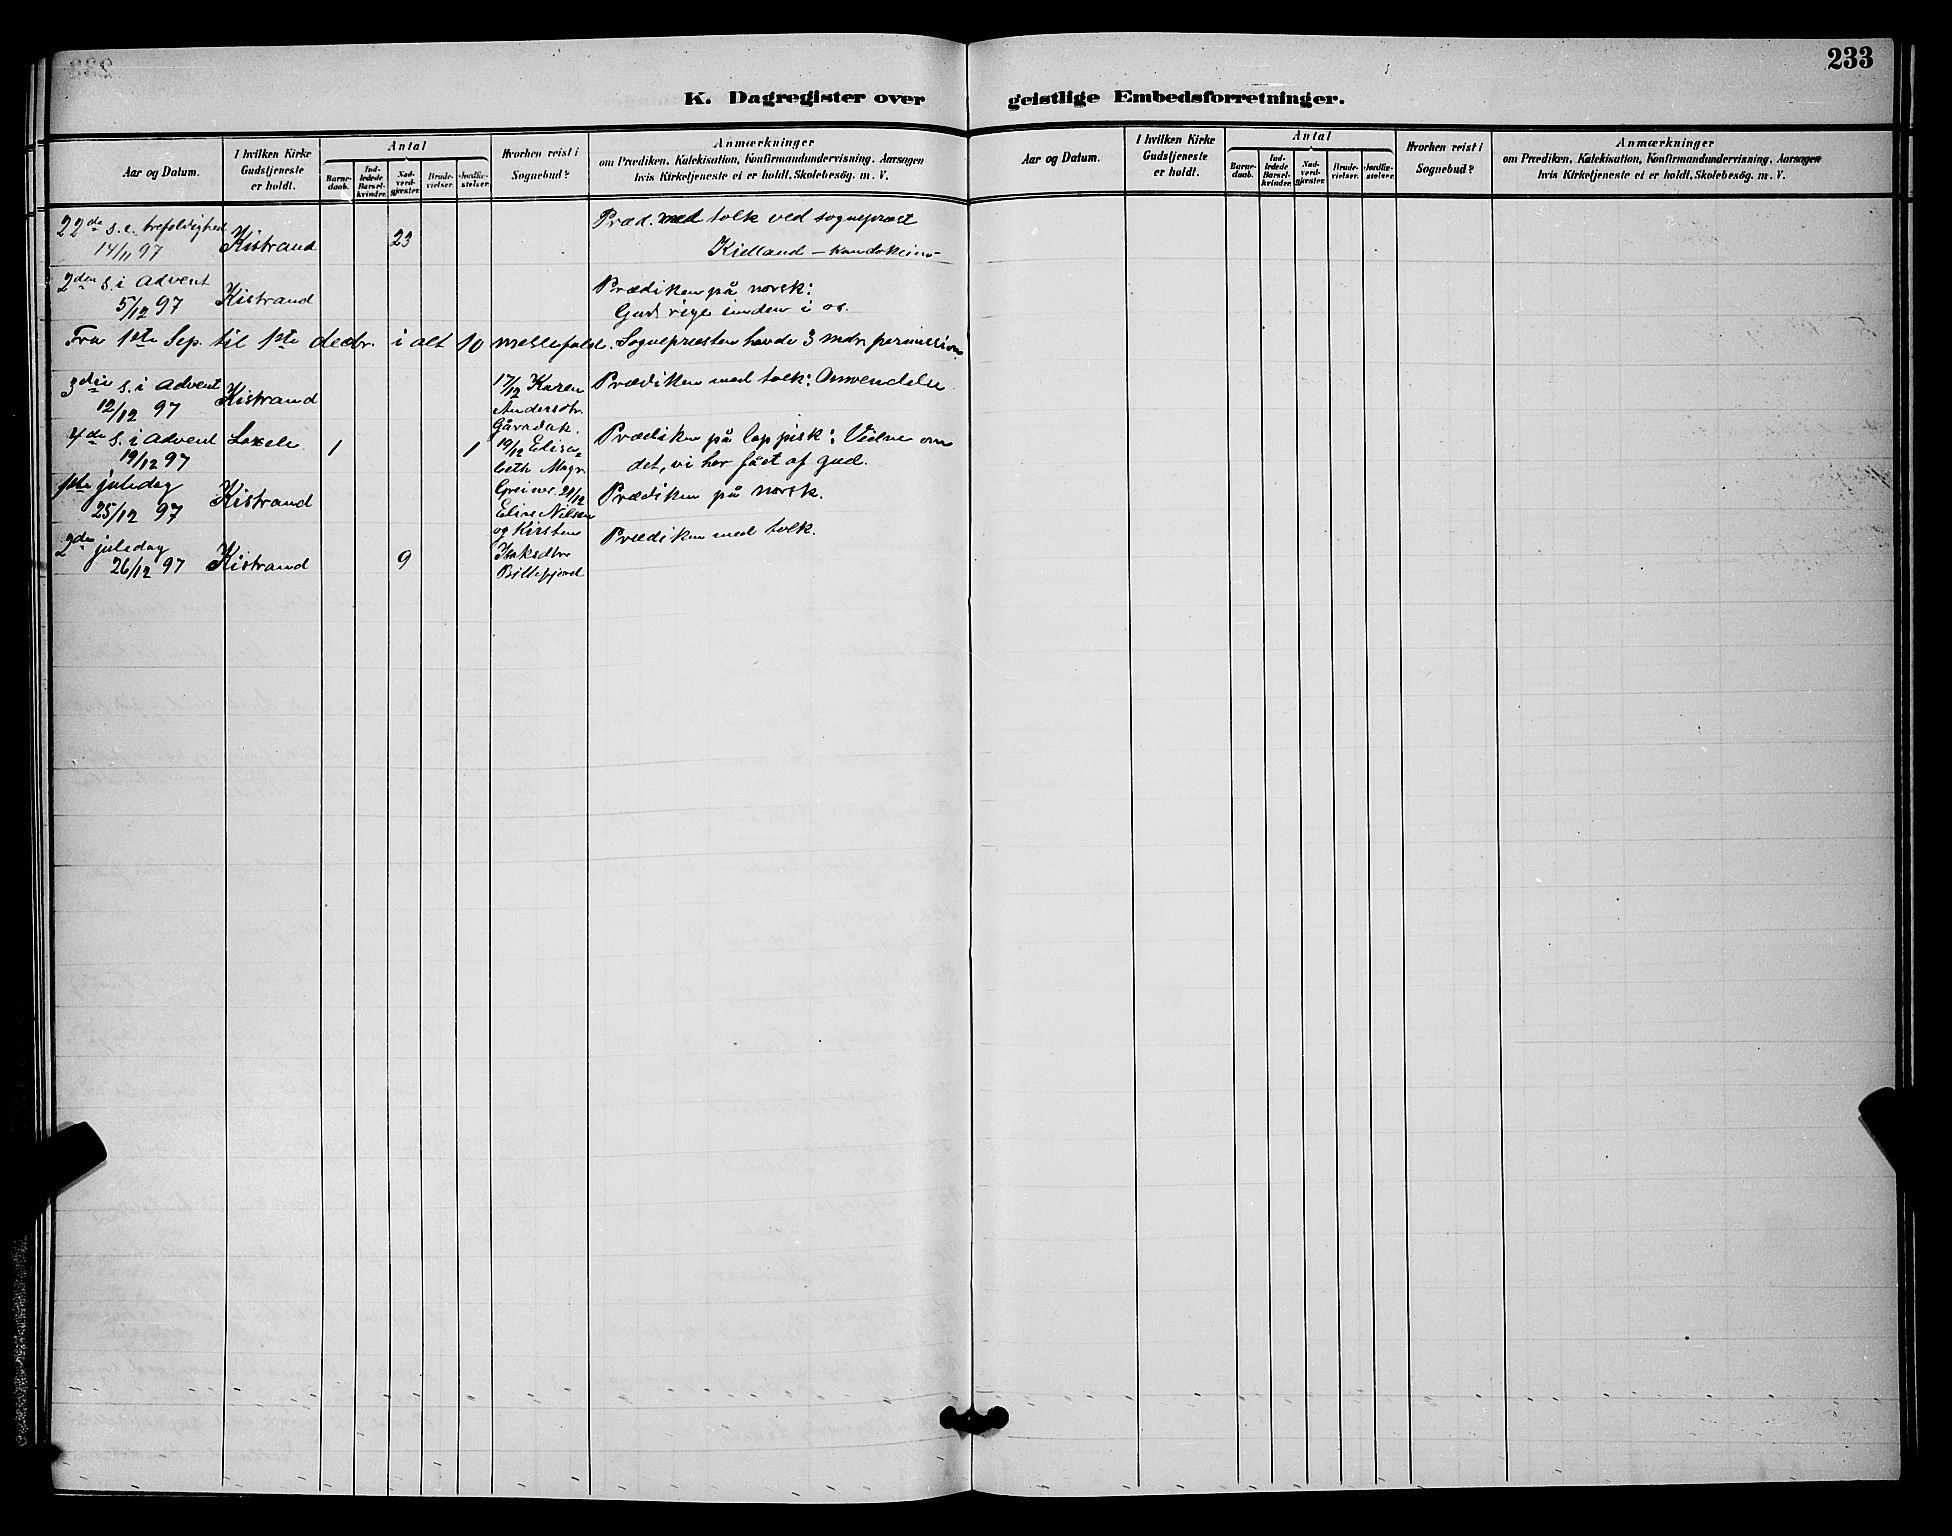 233
K. Dagregister over geistlige Embedsforretninger.
Aar og Datum.
I hvilken Kirke
Gudstjeneste
er holdt.
Antal
Barne-
daab.
Ind-
ledede
Barsel-
kvinder.
Nad-
verd-
gjæster.
Brude-
vielser.
Jordfæ-
stelser.
Hvorhen reist i
Sognebud?
Anmærkninger
om Prædiken, Katekisation, Konfirmandundervisning, Aarsagen
hvis Kirketjeneste ei er holdt, Skolebesög. m. V.
22de s. e. trefoldighed
14/11 97
Kistrand
23
Præd. med tolk ved sogneprest
Kielland - Kautokeino -
2den s. i advent
5/12 97
Kistrand
Prædiken på norsk:
Guds rige inden i os.
Fra 1ste Sep. til 1ste decbr. i alt 10 messefald. Sognepresten havde 3 mdr. permission
3die s. i advent
12/12 97
Kistrand
17/12 Karen
Andersdtr.
Prædiken med tolk: Anvendelse
4de s. i advent
19/12 97
1
1
19/12 Elisa-
beth Magr.
Greiner. 21/12
Prædiken på lappisk: Vidne om
det, vi har fået af gud.
1ste juledag
25/12 97
Kistrand
Elias Nilsen
og Kirsten
Prædiken på norsk.
2den juledag
26/12 97
Kistrand
9
Isaksdtr
Billefjord
Prædiken med tolk.
Aar og Datum.
I hvilken Kirke
Gudstjeneste
er holdt.
Antal
Barne-
daab.
Ind-
ledede
Barsel-
kvinder.
Nad-
verd-
gjæster.
Brude-
vielser.
Jordfæ-
stelser.
Hvorhen reist i
Sognebud?
Anmærkninger
om Prædiken, Katekisation, Konfirmandundervisning, Aarsagen
hvis Kirketjeneste ei er holdt, Skolebesög. m. V.